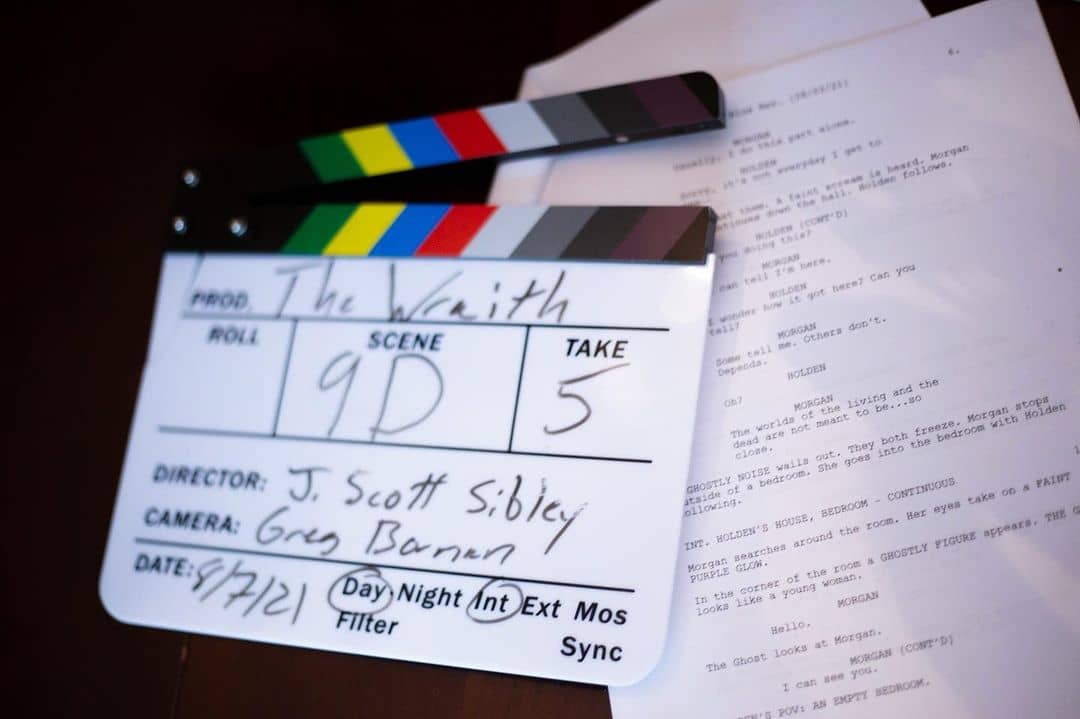 PROD. The Wraith
ROLL SCENE TAKE
9D 5
DIRECTOR: J. Scott Sibley
CAMERA: Greg
DATE: 8/7/21
Day Night Int Ext Mos
Filter Sync
6.
MORGAN
Usually, I do this part alone.
HOLDEN
Sorry, it's not everyday I get to
them. A faint scream is heard. Morgan
down the hall. Holden follows.
HOLDEN (CONT'D)
you doing this?
MORGAN
can tell I'm here.
HOLDEN
I wonder how it got here? Can you
tell?
MORGAN
Some tell me. Others don't.
Depends.
HOLDEN
Oh?
MORGAN
The worlds of the living and the
dead are not meant to be...so
close.
GHOSTLY NOISE wails out. They both freeze. Morgan stops
outside of a bedroom. She goes into the bedroom with Holden
following.
INT. HOLDEN'S HOUSE, BEDROOM - CONTINUOUS
Morgan searches around the room. Her eyes take on a FAINT
PURPLE GLOW.
In the corner of the room a GHOSTLY FIGURE appears. THE G
looks like a young woman.
MORGAN
Hello.
The Ghost looks at Morgan.
MORGAN (CONT'D)
I can see you.
POV: AN EMPTY BEDROOM.